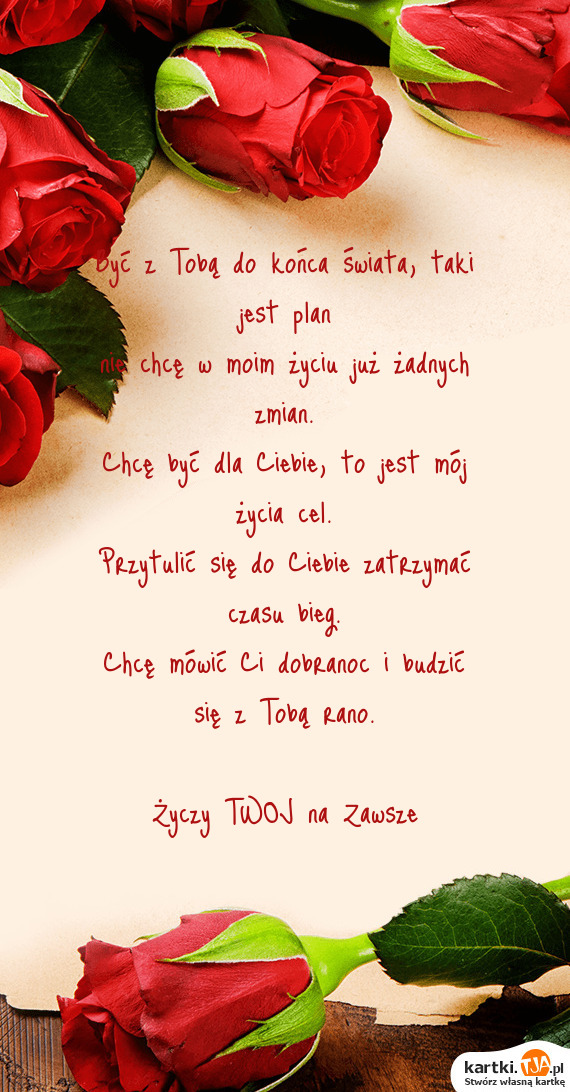 Być z Tobą do końca świata, taki
jest plan
nie chcę w moim życiu już żadnych
zmian.
Chcę być dla Ciebie, to jest mój
życia cel.
Przytulić się do Ciebie zatrzymać
czasu bieg.
Chcę mówić Ci dobranoc i budzić
się z Tobą rano.
Życzy TWOJ na Zawsze
kartki.TJA.pl
Stwórz własną kartkę